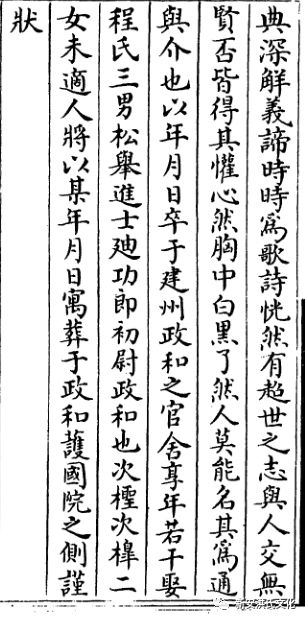 典深解義諦時時爲歌詩恍然有超世之志與人交無
賢否皆得其懽心然胸中白黒了然人莫能名其爲通
與介也以年月日卒于建州政和之官舍享年若干娶
程氏三男松舉進士廸功郎初尉政和也次檉次槹二
女未適人將以某年月日寓葬于政和護國院之側謹
狀
新安洪氏文化